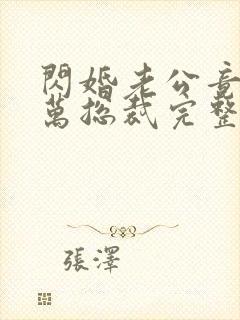 閃婚老公竟
萬總裁完整
張澤